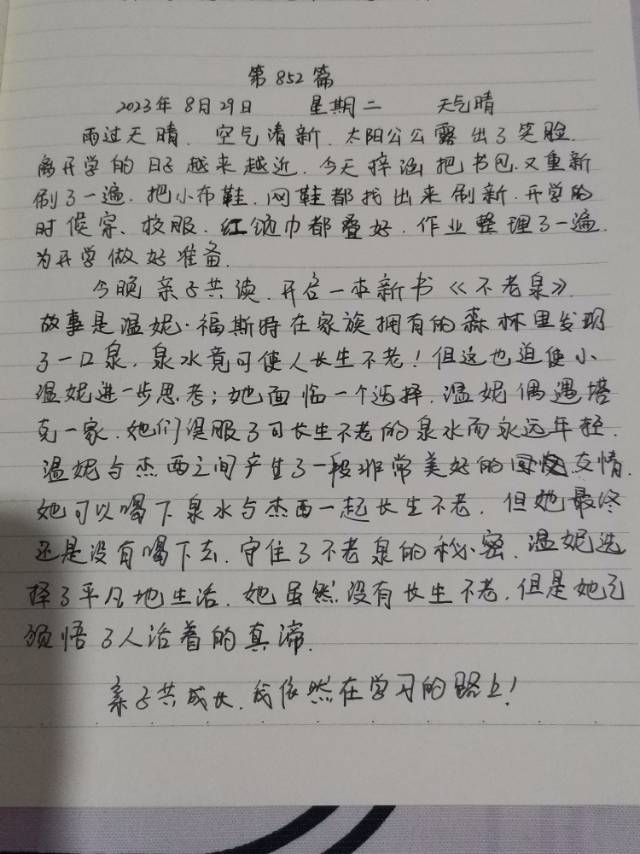 第852篇
2023年8月29日 星期二 天气晴
雨过天晴、空气清新、太阳公公露出了笑脸.
离开学的日子越来越近.今天梓涵把书包又重新
刷了一遍.把小布鞋、网鞋都找出来刷新.开学的
时候穿、校服、红领巾都叠好.作业整理了一遍.
为开学做好准备.
今晚亲子共读.开启一本新书《不老泉》.
故事是温妮·福斯特在家族拥有的森林里发现
了一口泉、泉水竟可使人长生不老！但这也迫使小
温妮进一步思考；她面临一个选择.温妮偶遇塔
克一家.她们误服了可长生不老的泉水而永远年轻.
温妮与杰西之间产生了一段非常美好的友情.
她可以喝下泉水与杰西一起长生不老.但她最终
还是没有喝下去.守住了不老泉的秘密.温妮选
择了平凡地生活.她虽然没有长生不老.但是她已
领悟了人活着的真谛.
亲子共成长.我依然在学习的路上！